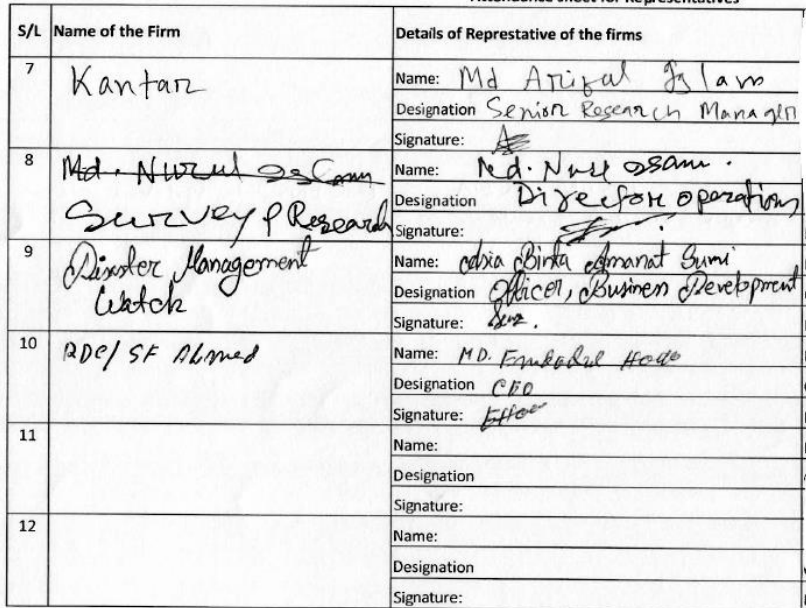 Attendance Sheet for Representatives
S/L Name of the Firm Details of Represtative of the firms
7 Kantar Name: Md Ariful Islam
Designation Senior Research Manager
Signature:
8 Md. Nurul Name: Md. Nurul
Survey & Research Designation Director operations
Signature:
9 Disaster Management Name: Binta Amanat Sumi
Watch Designation Officer, Business Development
Signature:
10 RDC/ SF Ahmed Name: MD. Hoque
Designation CEO
Signature:
11 Name:
Designation
Signature:
12 Name:
Designation
Signature: